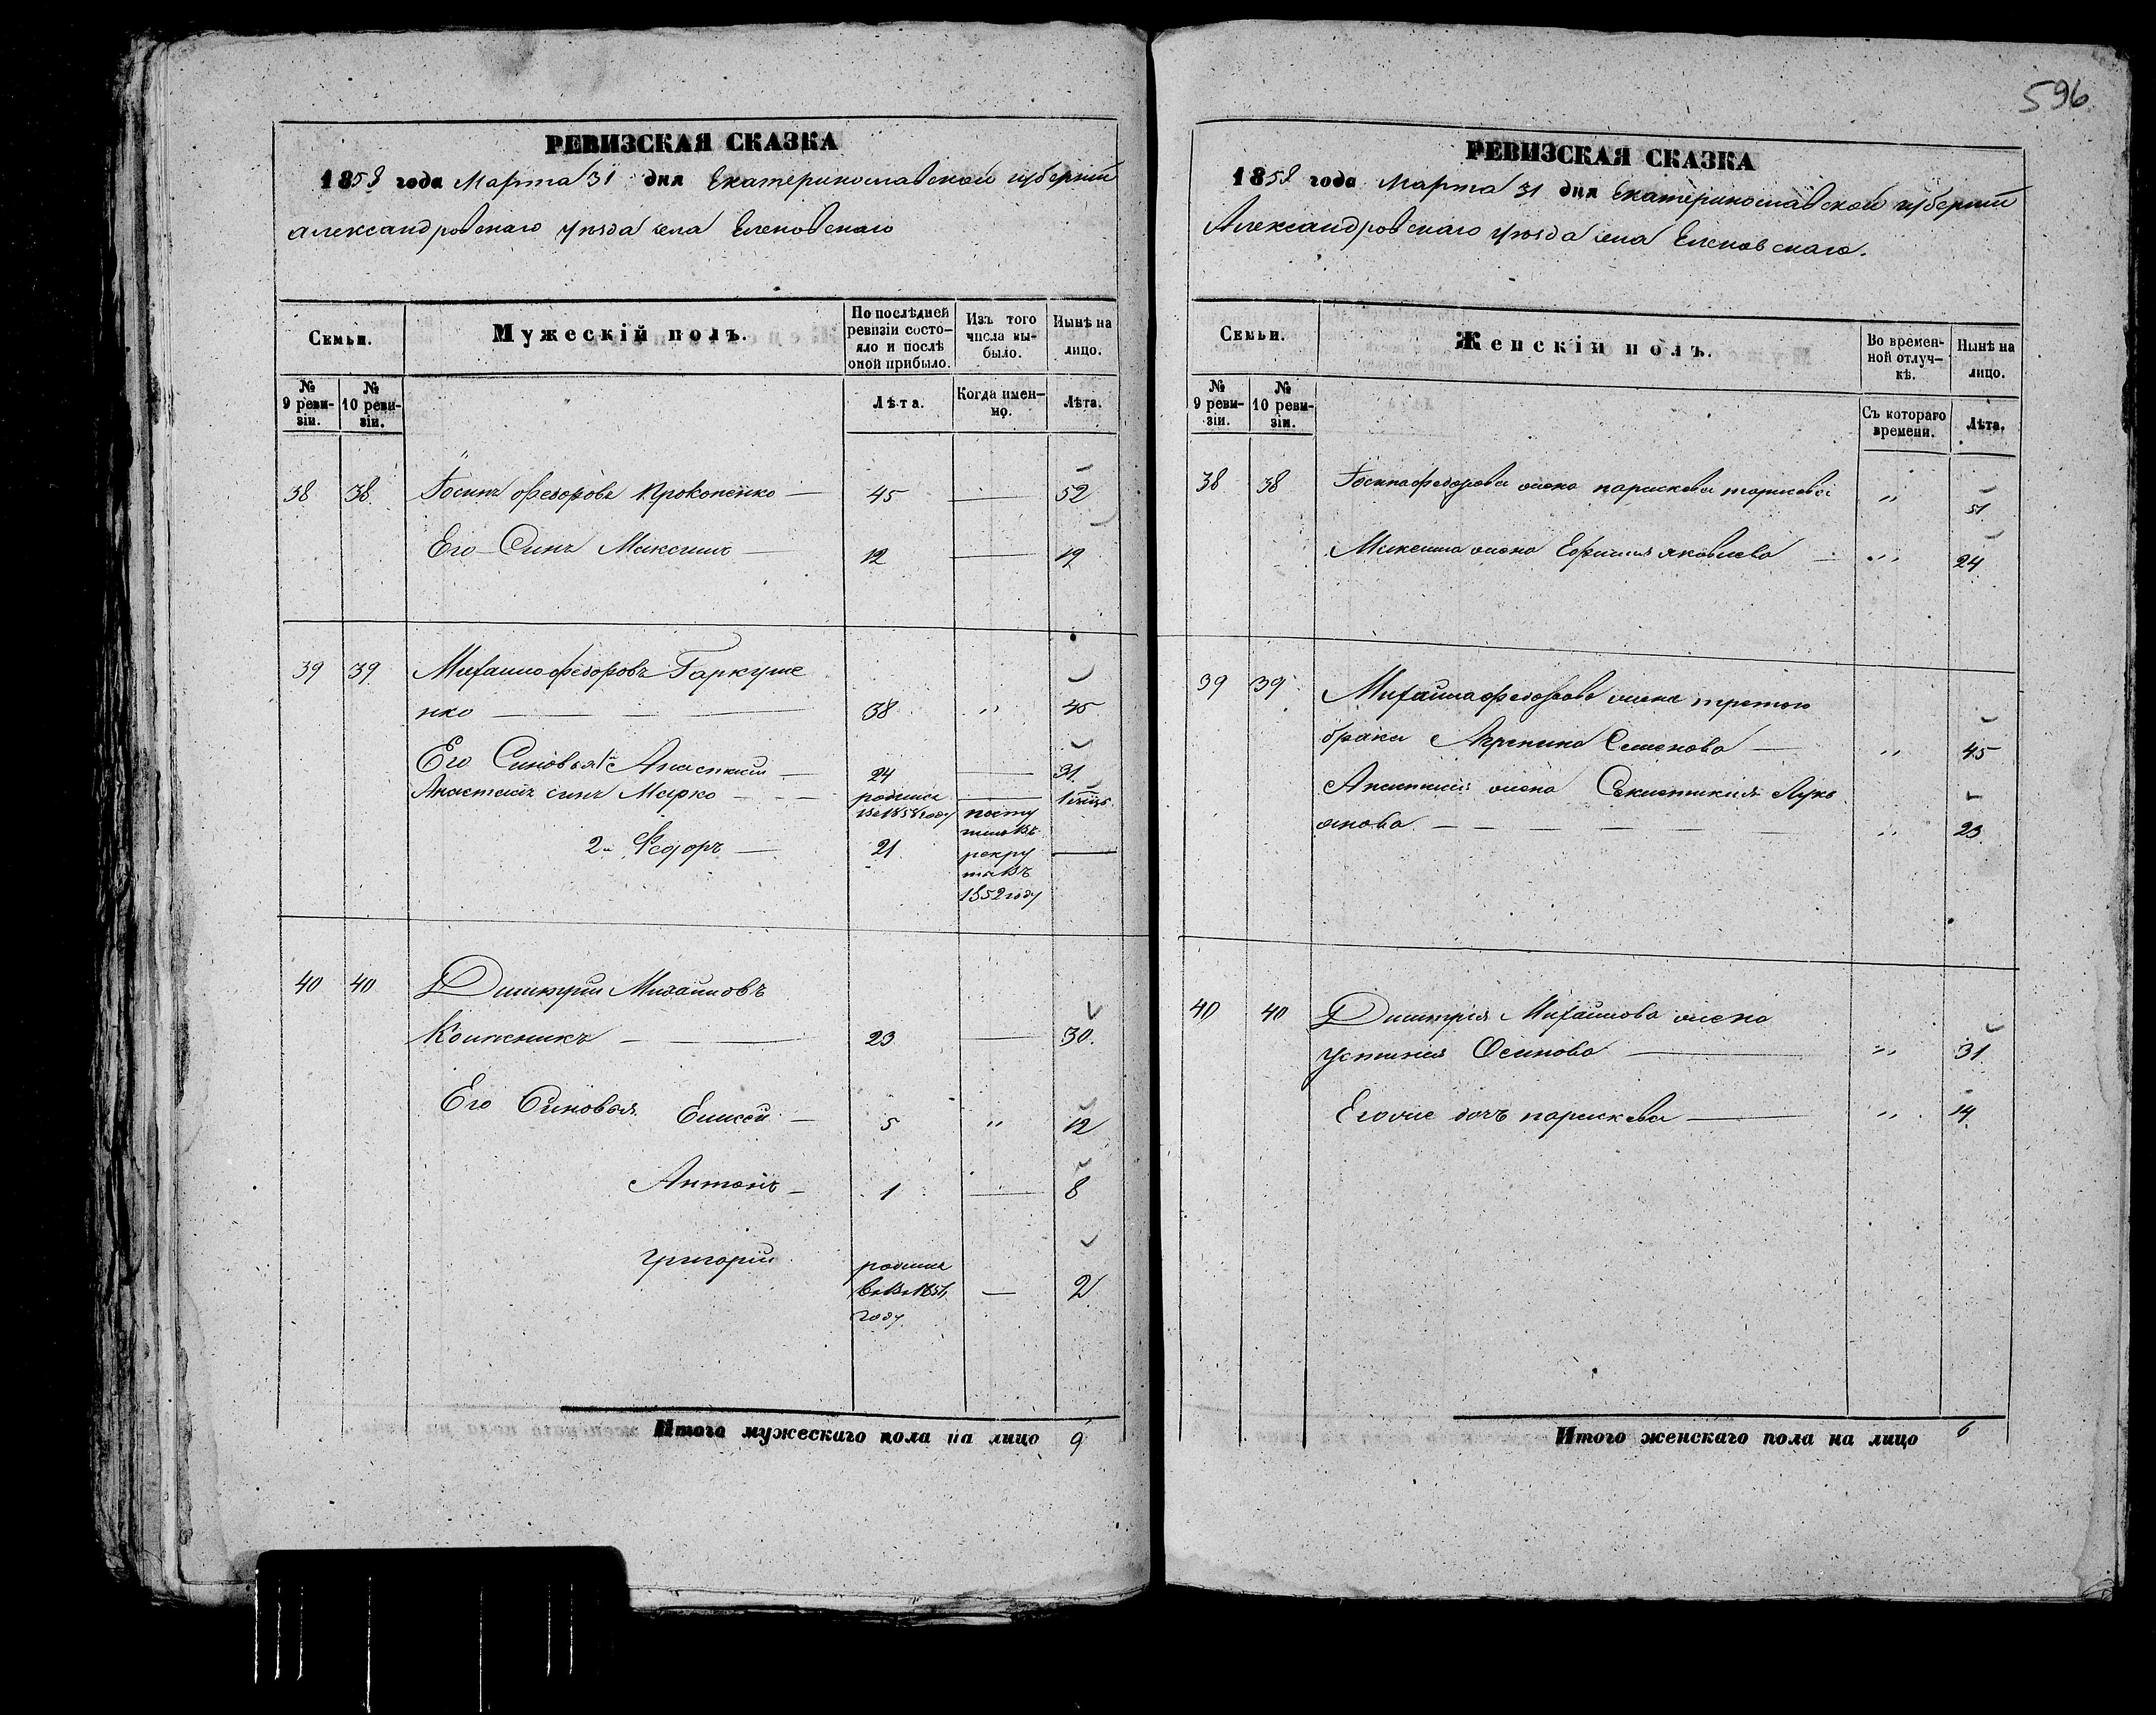 596
РЕВИЗСКАЯ СКАЗКА
1858 года Марта 31 дня Екатеринославской губернии
Александровскаго уѣзда села Еленовскаго
Семьи.
Мужескій полъ.
По послѣдней ревизіи состо-
яло и послѣ
оной прибыло.
Изъ того
числа вы-
было.
Нынѣ на
лицо.
№
9 реви-
зіи.
№
10 реви-
зіи.
Лѣта.
Когда имен-
но.
Лѣта.
38 38 Іосипъ Федоровъ Прокопенко — 45 — 52
Его Синъ Максимъ — 12 — 19
39 39 Михаило Федоровъ Гаркуше
нко — 38 " 45
Его Синовья 1й Анастасій — 24 — 31
Анастасія синъ Марко — родился — 1
году
2й Федоръ — 21 —
посту
рекру
1852 году
40 40 Димитрій Михаиловъ
Кожникъ — 23 — 30.
Его Синовья Елисей — 5 " 12
Антонъ — 1 — 8
Григорій родился
году — 2
Итого мужескаго пола на лицо 9
РЕВИЗСКАЯ СКАЗКА
1858 года Марта 31 дня Екатеринославской губернии
Александровскаго уѣзда села Еленовскаго.
Семьи.
Женскій полъ.
Во времен-
ной отлуч-
кѣ.
Нынѣ на
лицо.
№
9 реви-
зіи.
№
10 реви-
зіи.
Съ котораго
времени.
Лѣта.
38 38 Іосипа Федорова жена Параскева " 51
Максима жена Ефимия Яковлева — " 24
39 39 Михаила Федорова жена третого
брака Агрепина Семенова — " 45
Анастасія жена Лукь
янова — " 23
40 40 Димитрія Михаилова жена
Устиния Осипова — " 31
Егоже дочъ Параскева — " 14
Итого женскаго пола на лицо 6